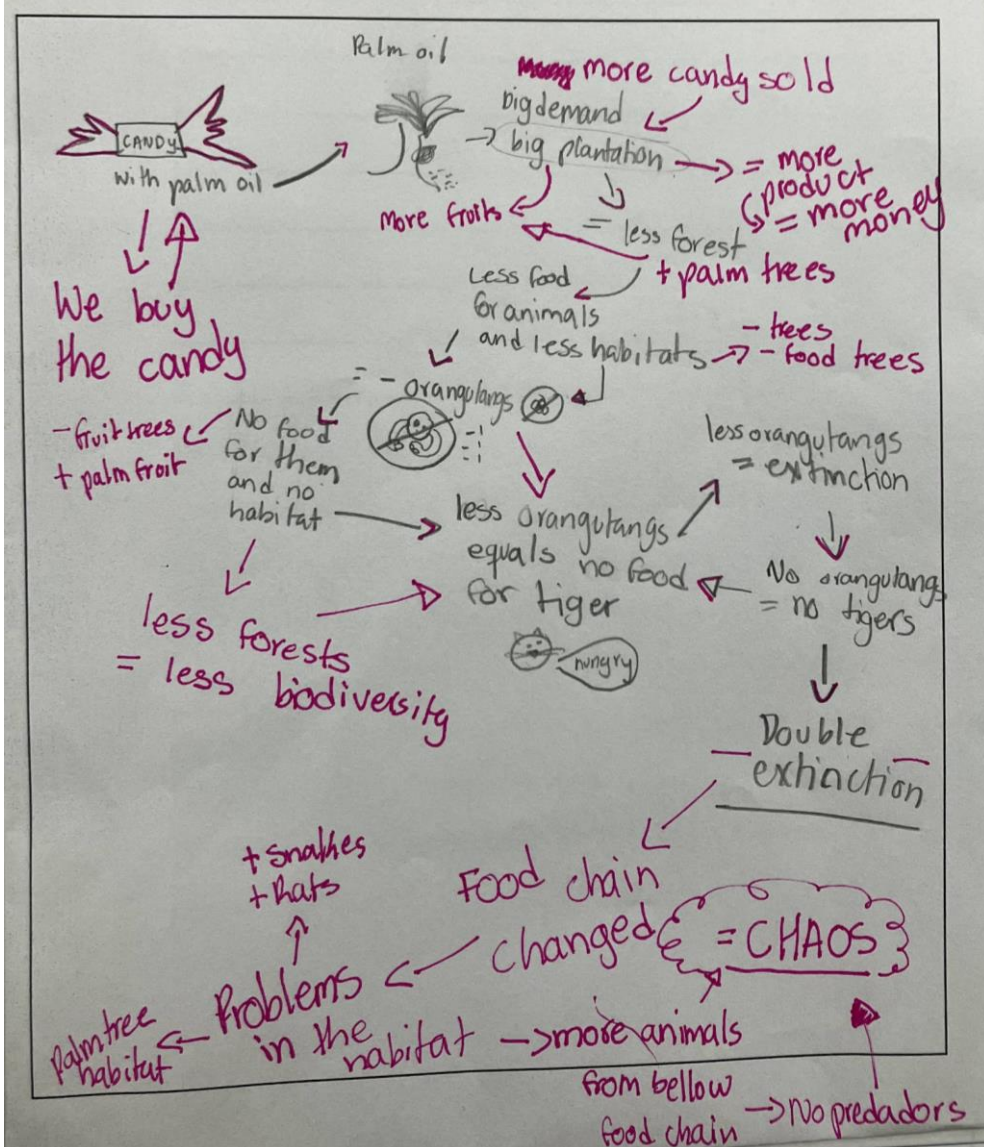 Palm oil
more candy sold
CANDY
with palm oil
big demand
big plantation
= more
product
= more
money
More fruits
= less forest
+ palm trees
We buy
the candy
Less food
for animals
and less habitats
- trees
- food trees
= - orangutangs
- fruit trees
+ palm froit
No food
for them
and no
habitat
less orangutangs
= extinction
less orangutangs
equals no food
for tiger
hungry
No orangutangs
= no tigers
less forests
= less biodiversity
Double
extinction
+ Snakes
+ Rats
Food chain
changed
= CHAOS
Problems
in the
habitat
palm tree
habitat
more animals
from bellow
food chain
No predadors